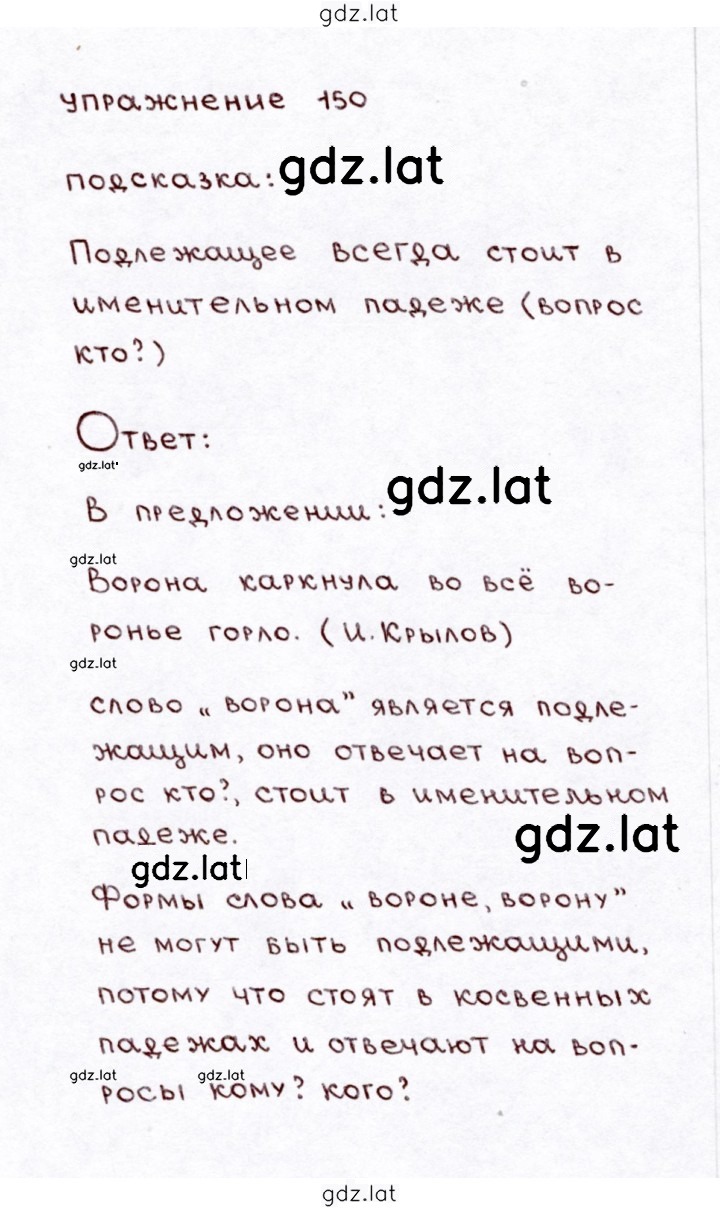 gdz.lat
упражнение 150
подсказка: gdz.lat
Подлежащее всегда стоит в
именительном падеже (вопрос
кто?)
Ответ:
gdz.lat
В предложении: gdz.lat
gdz.lat
Ворона каркнула во всё во-
ронье горло. (И. Крылов)
gdz.lat
слово „ ворона” является подле-
жащим, оно отвечает на воп-
рос кто?, стоит в именительном
падеже.
gdz.lat
gdz.lat
Формы слова „ вороне, ворону”
не могут быть подлежащими,
потому что стоят в косвенных
падежах и отвечают на воп-
gdz.lat gdz.lat
росы кому? кого?
gdz.lat